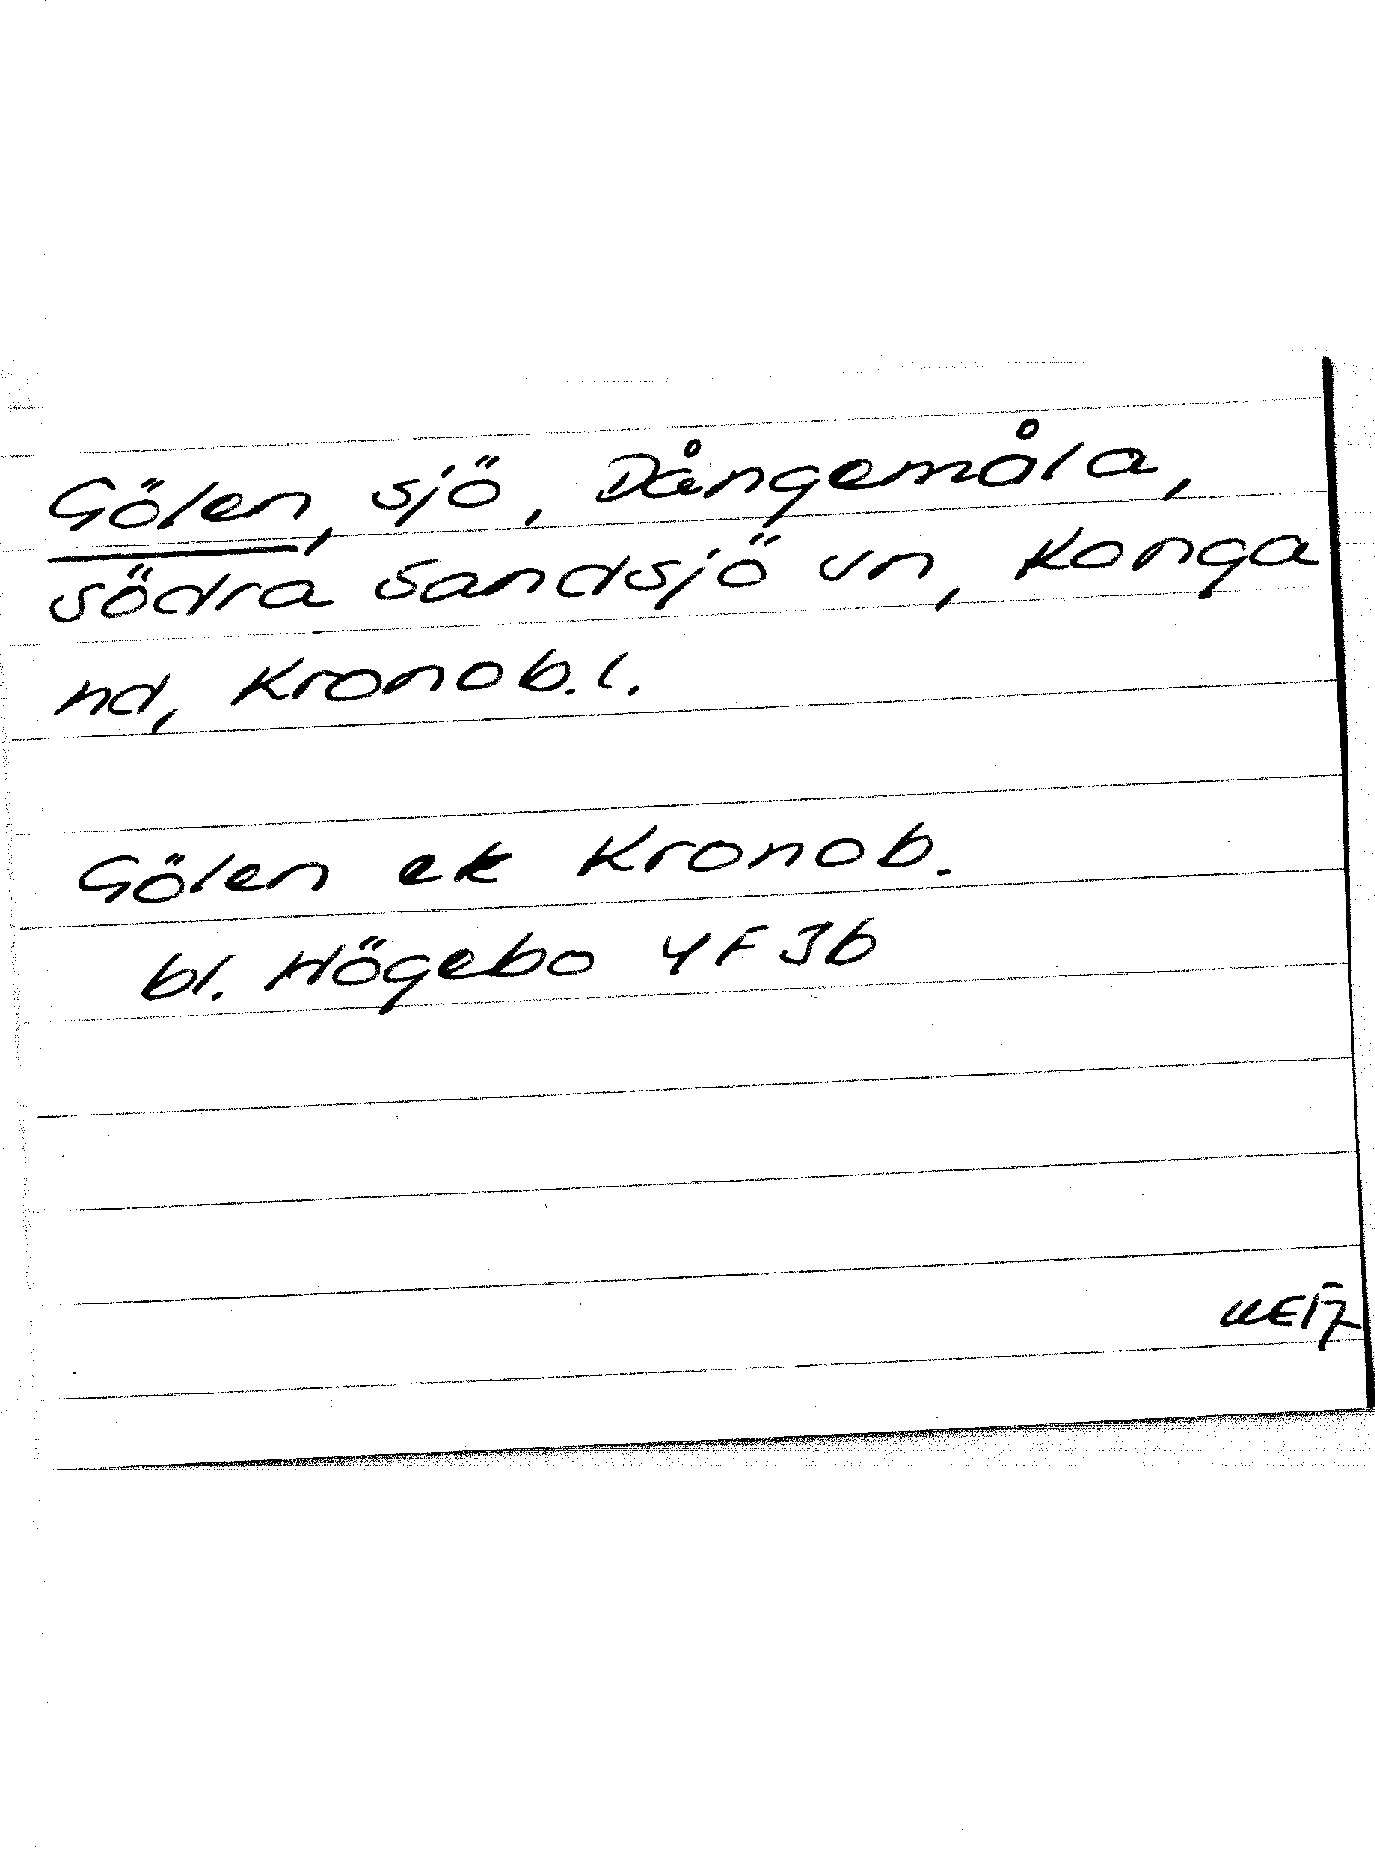 Gölen, sjö, Dångemåla,
södra Sandsjö sn, Konga
hd, Kronob. l.
Gölen ek Kronob.
bl. Högebo 4F3b